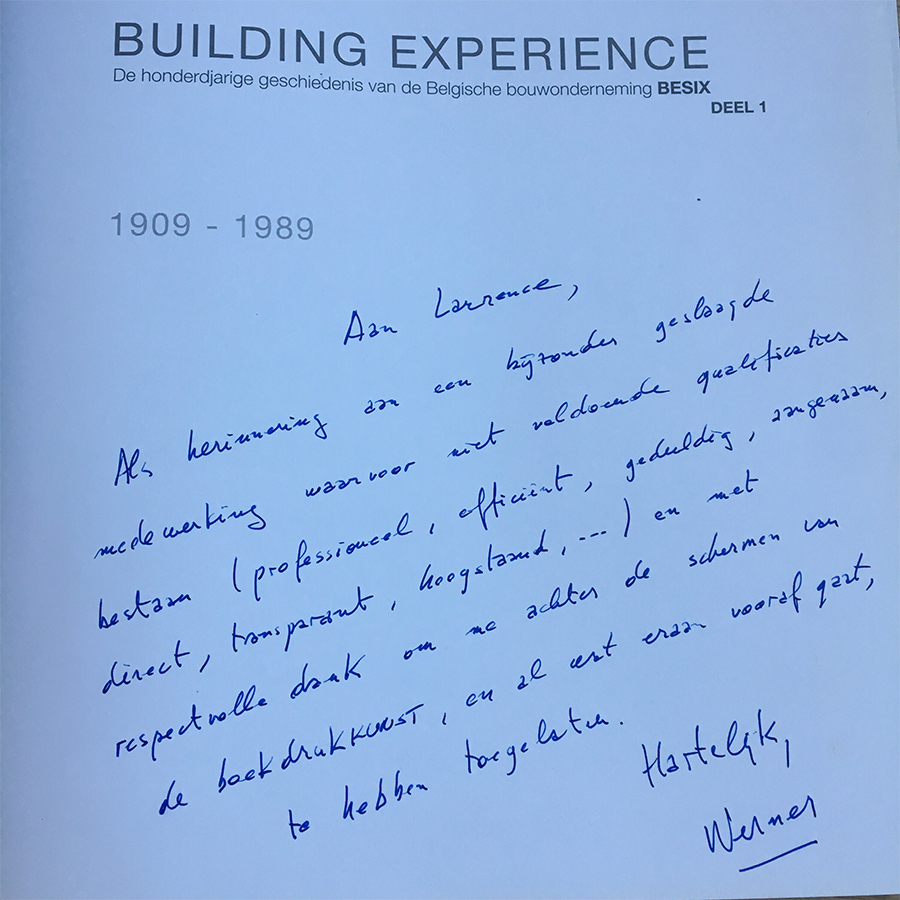 BUILDING EXPERIENCE
De honderdjarige geschiedenis van de Belgische bouwonderneming BESIX
DEEL 1
1909 - 1989
Aan Larrence,
Als herinnering aan een bijzonder geslaagde
medewerking waarvoor niet voldoende qualificaties
bestaan (professioneel, efficiënt, geduldig, aangenaam,
direct, transparant, hoogstaand, ---) en met
respectvolle dank om me achter de schermen van
de boekdrukKUNST, en al wat eraan vooraf gaat,
te hebben toegelaten.
Hartelijk,
Werner